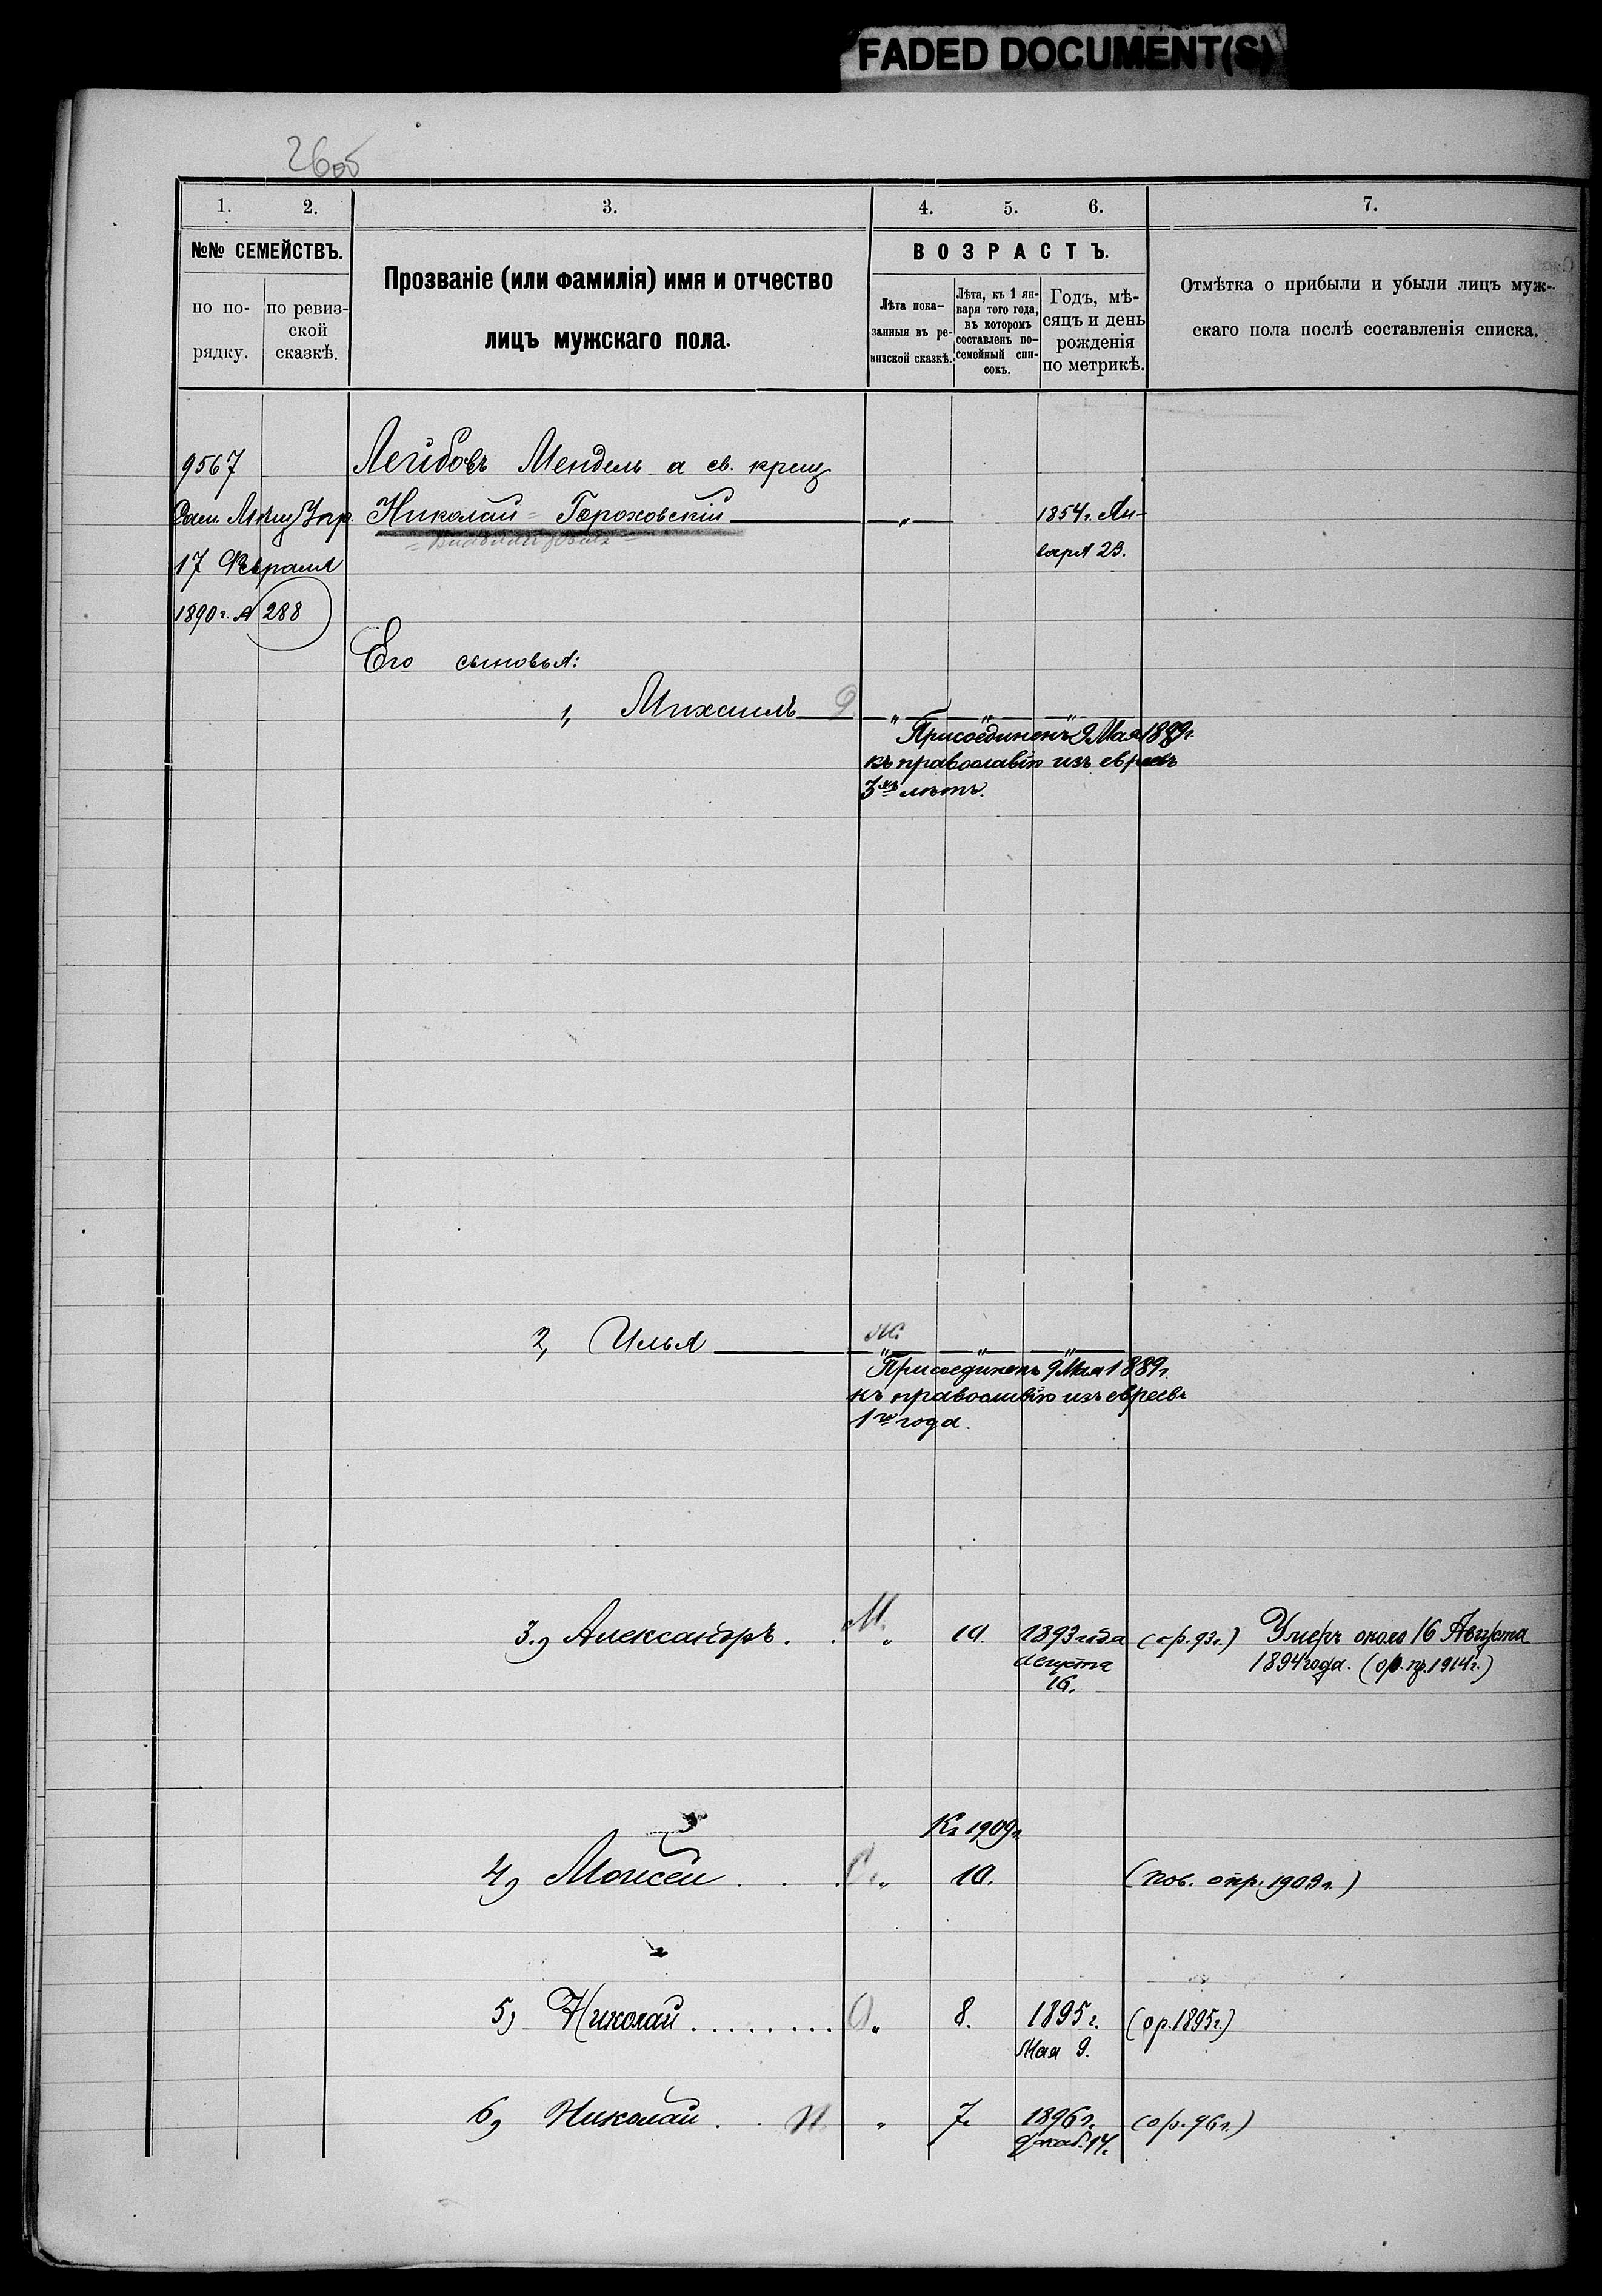 FADED DOCUMENT(S)
26об
1. 2. 3. 4. 5. 6. 7.
№№ СЕМЕЙСТВЪ.
по порядку.
по ревизской сказкѣ.
Прозваніе (или фамилія) имя и отчество
лицъ мужскаго пола.
ВОЗРАСТЪ.
Лѣта пока-
занныя въ ре-
визской сказкѣ.
Лѣта, къ 1 ян-
варя того года,
въ которомъ
составленъ по-
семейный спи-
сокъ.
Годъ, мѣ-
сяцъ и день
рожденія
по метрикѣ.
Отмѣтка о прибыли и убыли лицъ муж-
скаго пола послѣ составленія списка.
9567 Лейбовъ Мендель а св. крещ.
Николай Гороховскій " 1854 г. Ян-
варя 23.
17 Февраля
1890 г. № 288
Его сыновья:
1, Михаилъ " " "
Присоединенъ 9 Мая 1889 г.
къ православію изъ евреевъ
3хъ лѣтъ.
2, Илья " " "
Присоединенъ 9 Мая 1889 г.
къ православію изъ евреевъ
1го года.
3, Александръ. . М. " 10. 1893 года (ор. 93 г.) Умеръ около 16 Августа
Августа 1894 года. (ор. пр. 1914 г.)
16.
Къ 1909 г.
4, Моисей . . . " 10. (пов. опр. 1909 г.)
5, Николай ........ " 8. 1895 г. (ор. 1895 г.)
Мая 9.
6, Николай . . " 7. 1896 г. (ор. 96 г.)
Декаб. 14.